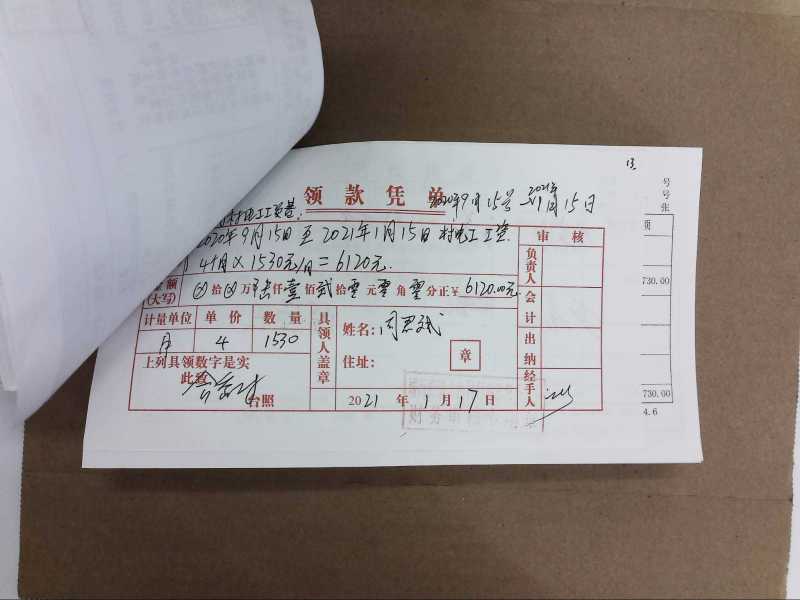 13
领款凭单
2020年9月15号—2021年1月15日
村电工工资
2020年9月15日至2021年1月15日村电工工资.
4个月×1530元/月=6120元.
金额
(大写)
拾 万 陆仟壹佰贰拾零元零角零分正¥6120.00元
审核
负责人
会计
出纳
经手人
计量单位 单价 数量
月 4 1530
上列具领数字是实
此致
台照
具领人盖章
姓名:周
住址:
章
2021年1月17日
财务
号
号
张
730.00
730.00
4.6